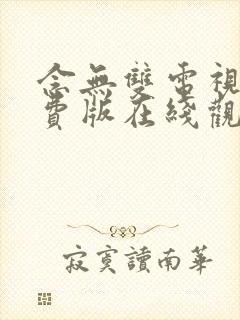 念無雙電視
費版在綫觀
寂寞讀南華